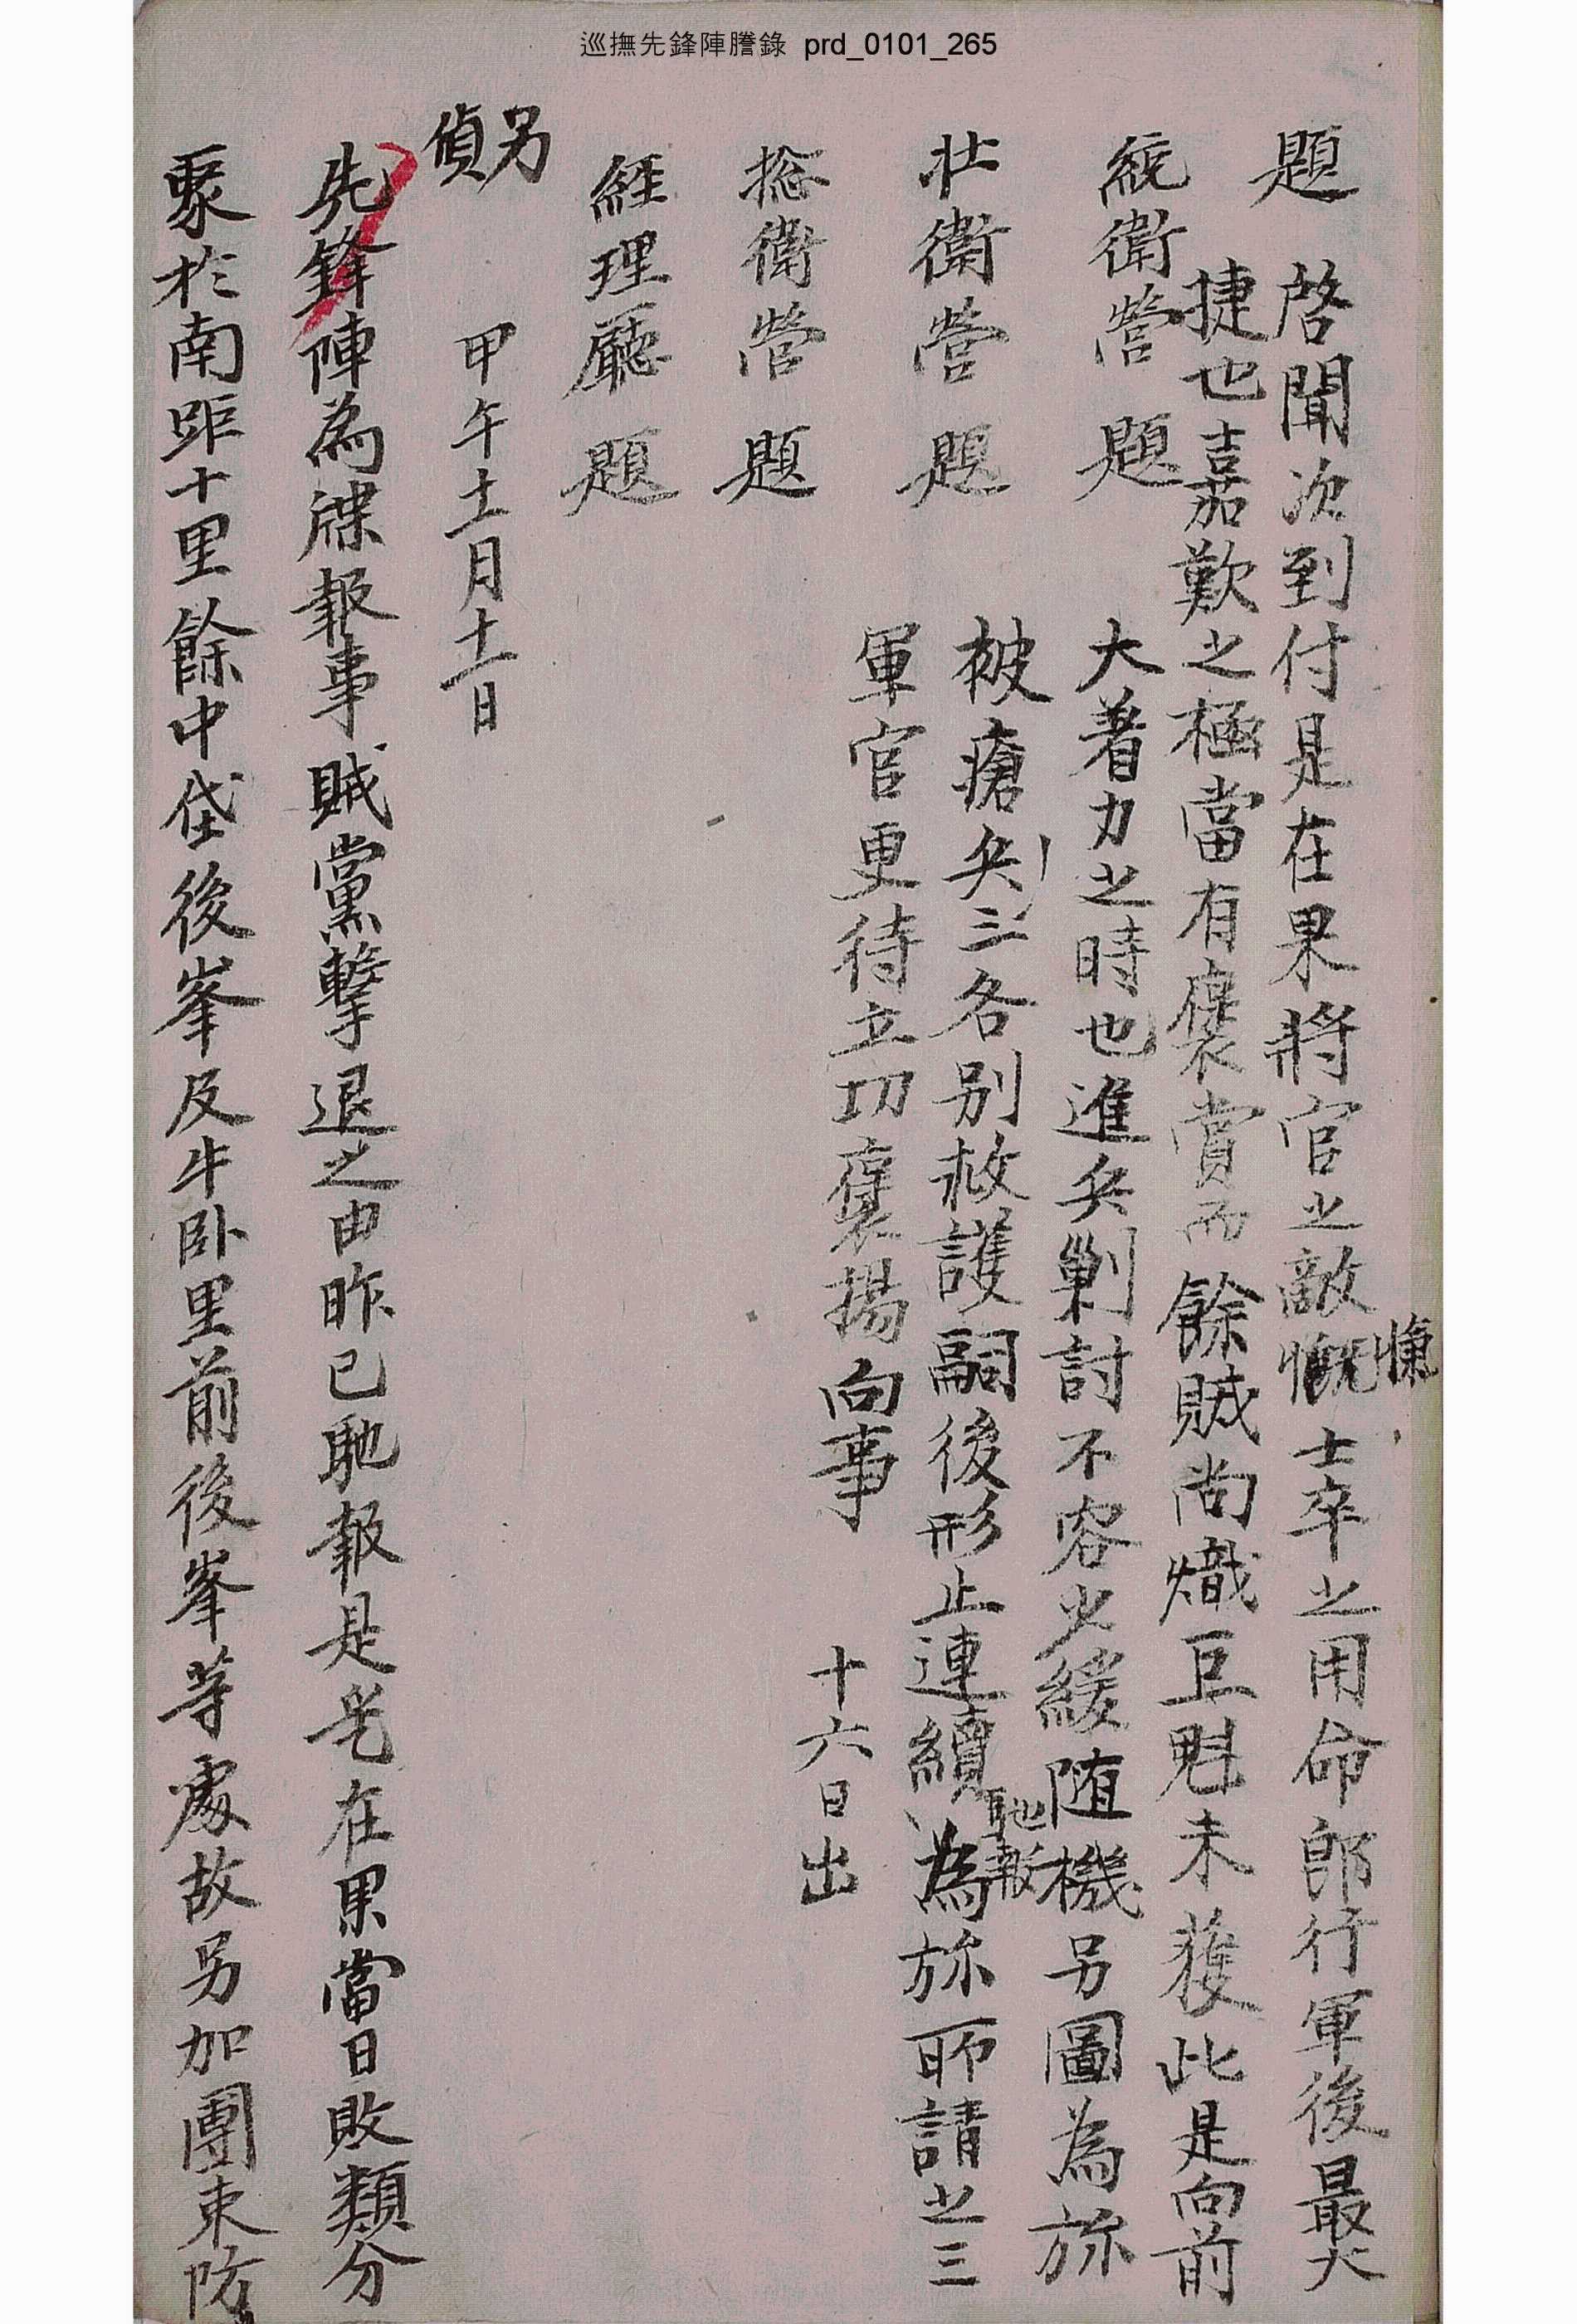 巡撫先鋒陣謄錄 prd_0101_265
題 啓聞次到付是在果將官之敵愾士卒之用命卽行軍後最大
慷
捷也嘉歎之極當有褒賞而餘賊尚熾巨魁未獲此是向前
統衛營 題 大着力之時也進兵剿討不容少緩随機另圖為旀
被瘡兵三各別救護嗣後形止連續為旀所請之三
馳報
壯衛營 題 軍官更待立功褒揚向事 十六日出
摠衛營 題
經理廳 題
另
偵
甲午十一月十一日
先鋒陣為牒報事賊黨擊退之由昨已馳報是在果當日敗類分
聚於南距十里餘中垈後峯及牛卧里前後峯等處故另加團束防